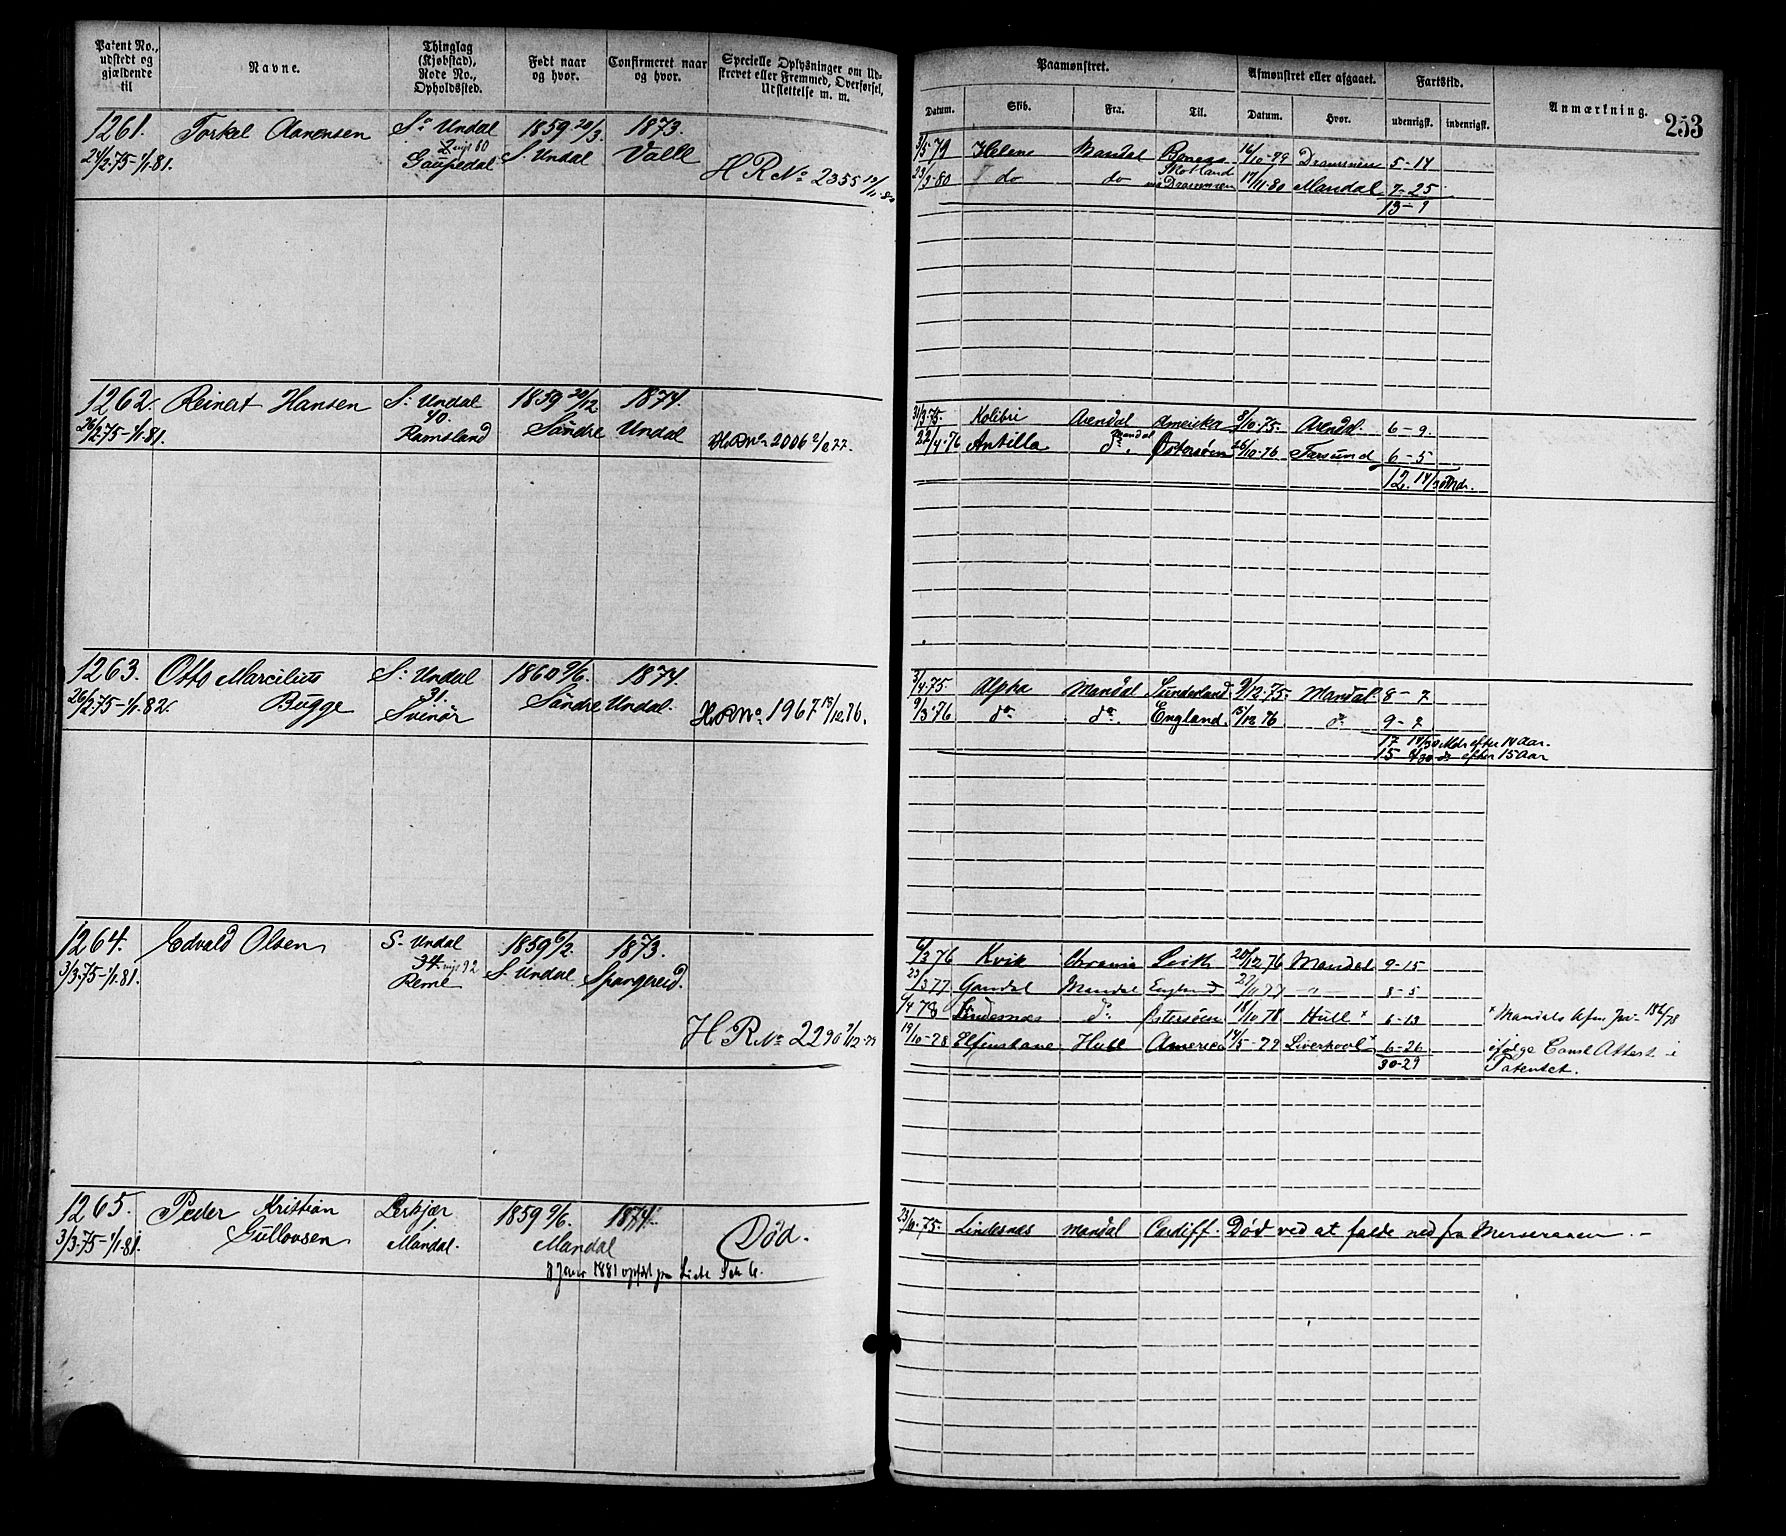 Patent No., udstedt og gjældende til
Navne.
Thinglag (Kjøbstad), Rode No., Opholdssted.
Født naar og hvor.
Confirmeret naar og hvor.
Specielle Oplysninger om Udskrevet eller Fremmed, Overførsel, Udslettelse m. m.
Paamønstret.
Datum.
Skib.
Fra.
Til.
Afmønstret eller afgaaet.
Datum.
Hvor.
Fartstid.
udenrigsk.
indenrigsk.
Anmærkning.
253
1261. Torkel Aanensen So Undal 1859 20/3 1873.
24/2 75-1/1 81. 2 nyt 60 Gaupedal S. Undal Valle H R No 2355
3/5 79 Helene Mandal 16/10-79 Drammen 5-14
23/3-80 do do Skotland Drammen 17/11 80 Mandal 7-25
13-9
1262. Reinert Hansen S. Undal 1859 20/2 1874.
26/2 75-1/1 81. 40. Ramsland Søndre Undal H.R.No 2006 2/6 77.
31/3 75. Kolibri Arendal Amerika 8/10-75. Arendal 6-9.
22/4-76 Antilla Mandal do. Østersøen 26/10-76 Farsund 6-5
12. 14/30 Mdr.
1263. Otto Marcilius S. Undal 1860 9/6. 1874.
26/2 75-1/1 82. Bugge 31. Svinør Søndre Undal. H.R.No. 1967 19/12 76.
3/4-75 Alpha Mandal Sunderland 9/12-75. Mandal. 8-7
9/3-76 do do. England. 15/12 76 do 9-7
17 14/30 Mdr efter 14 Aar.
15 do efter 15 Aar
1264. Edvald Olsen S. Undal 1859 6/2. 1873.
3/3 75-1/1 81. 34 nyt 92 Reme S. Undal. Spangereid.
H R No 2290
6/3 76 Kvik Chrania Leith 20/12 76 Mandal 9-15
23/3 77 Gandal Mandal England 27/11 77 -"- 8-5
6/4 78 Lindesnæs do Østersøen 18/10 78 Hull x 6-13 x
19/10-78 Elfinstone Hull America 14/5-79 Liverpool x 6-26 ifølge Consl Attest i
30-29 Patentet.
1265. Peder Kristian Lerkjær 1859 9/6. 1874.
3/3 75-1/1 81. Gullovsen Mandal. Mandal Død.
1881
23/6. 75. Lindesnæs Mandal Cardiff. Død ved at falde ned fra Merseraaen.-